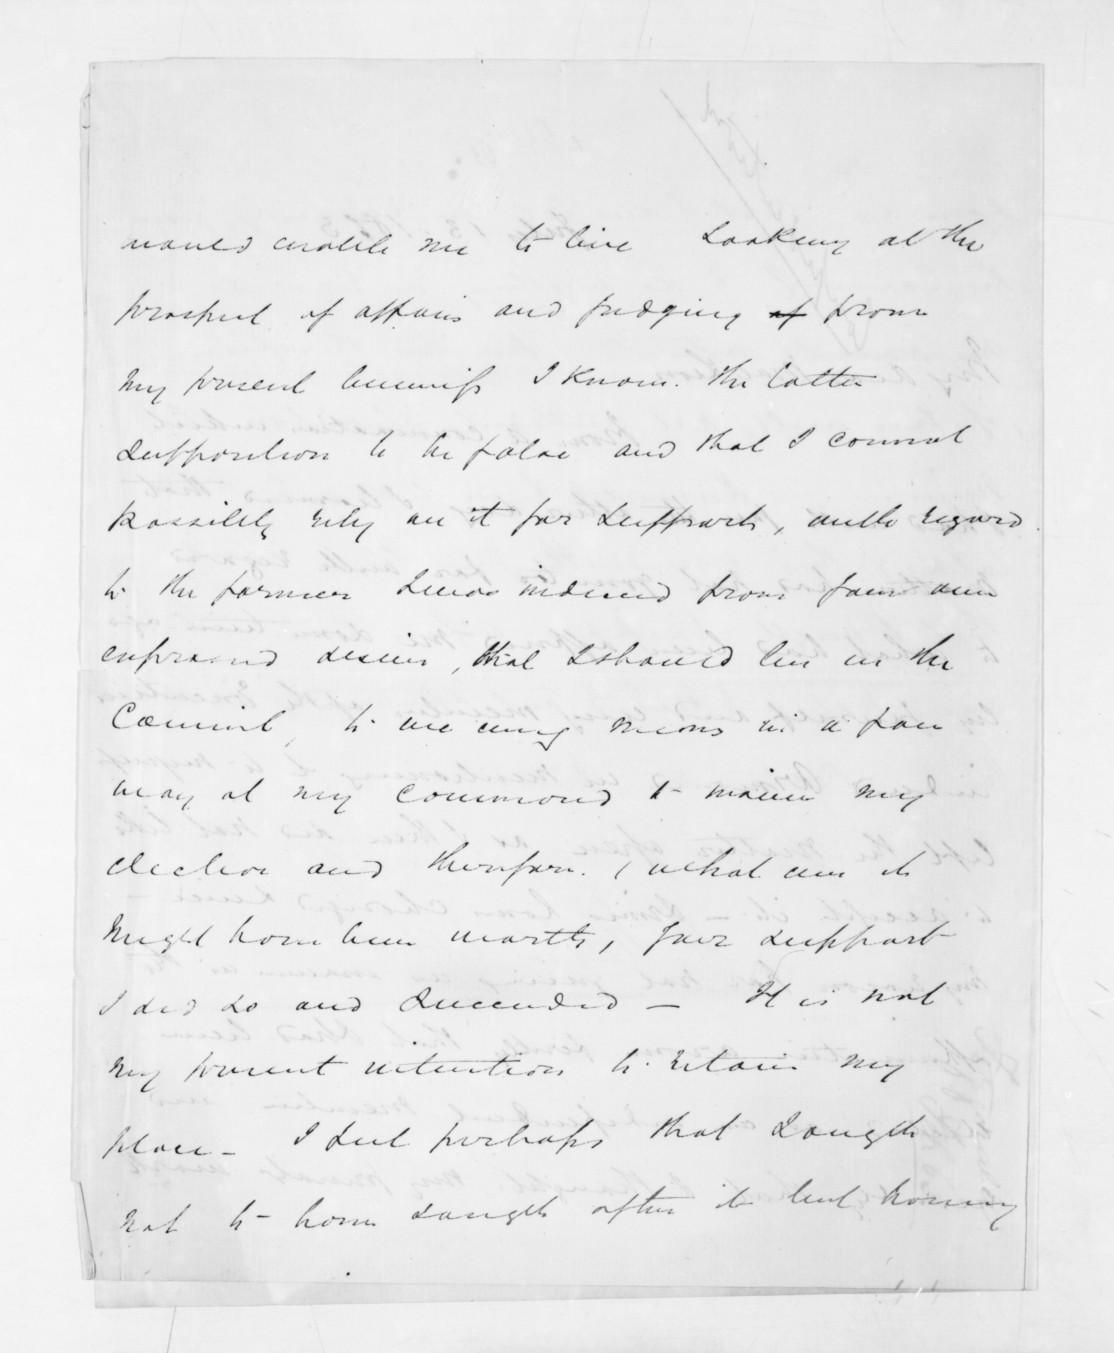 would enable me to live Looking at the
prospect of affairs and judging of from
my present business I know. the latter
supposition to be false and that I cannot
possibly rely on it for support, with regard
to the former I was induced from your own
expressed desire, that I should be in the
Council, to use every means in a fair
way at my command to make my
election and therefore. (what ever it
might have been worth, your support
I did so and succeeded — It is not
my present intention to retain my
place — I feel perhaps that I ought
not to have sought after it but having